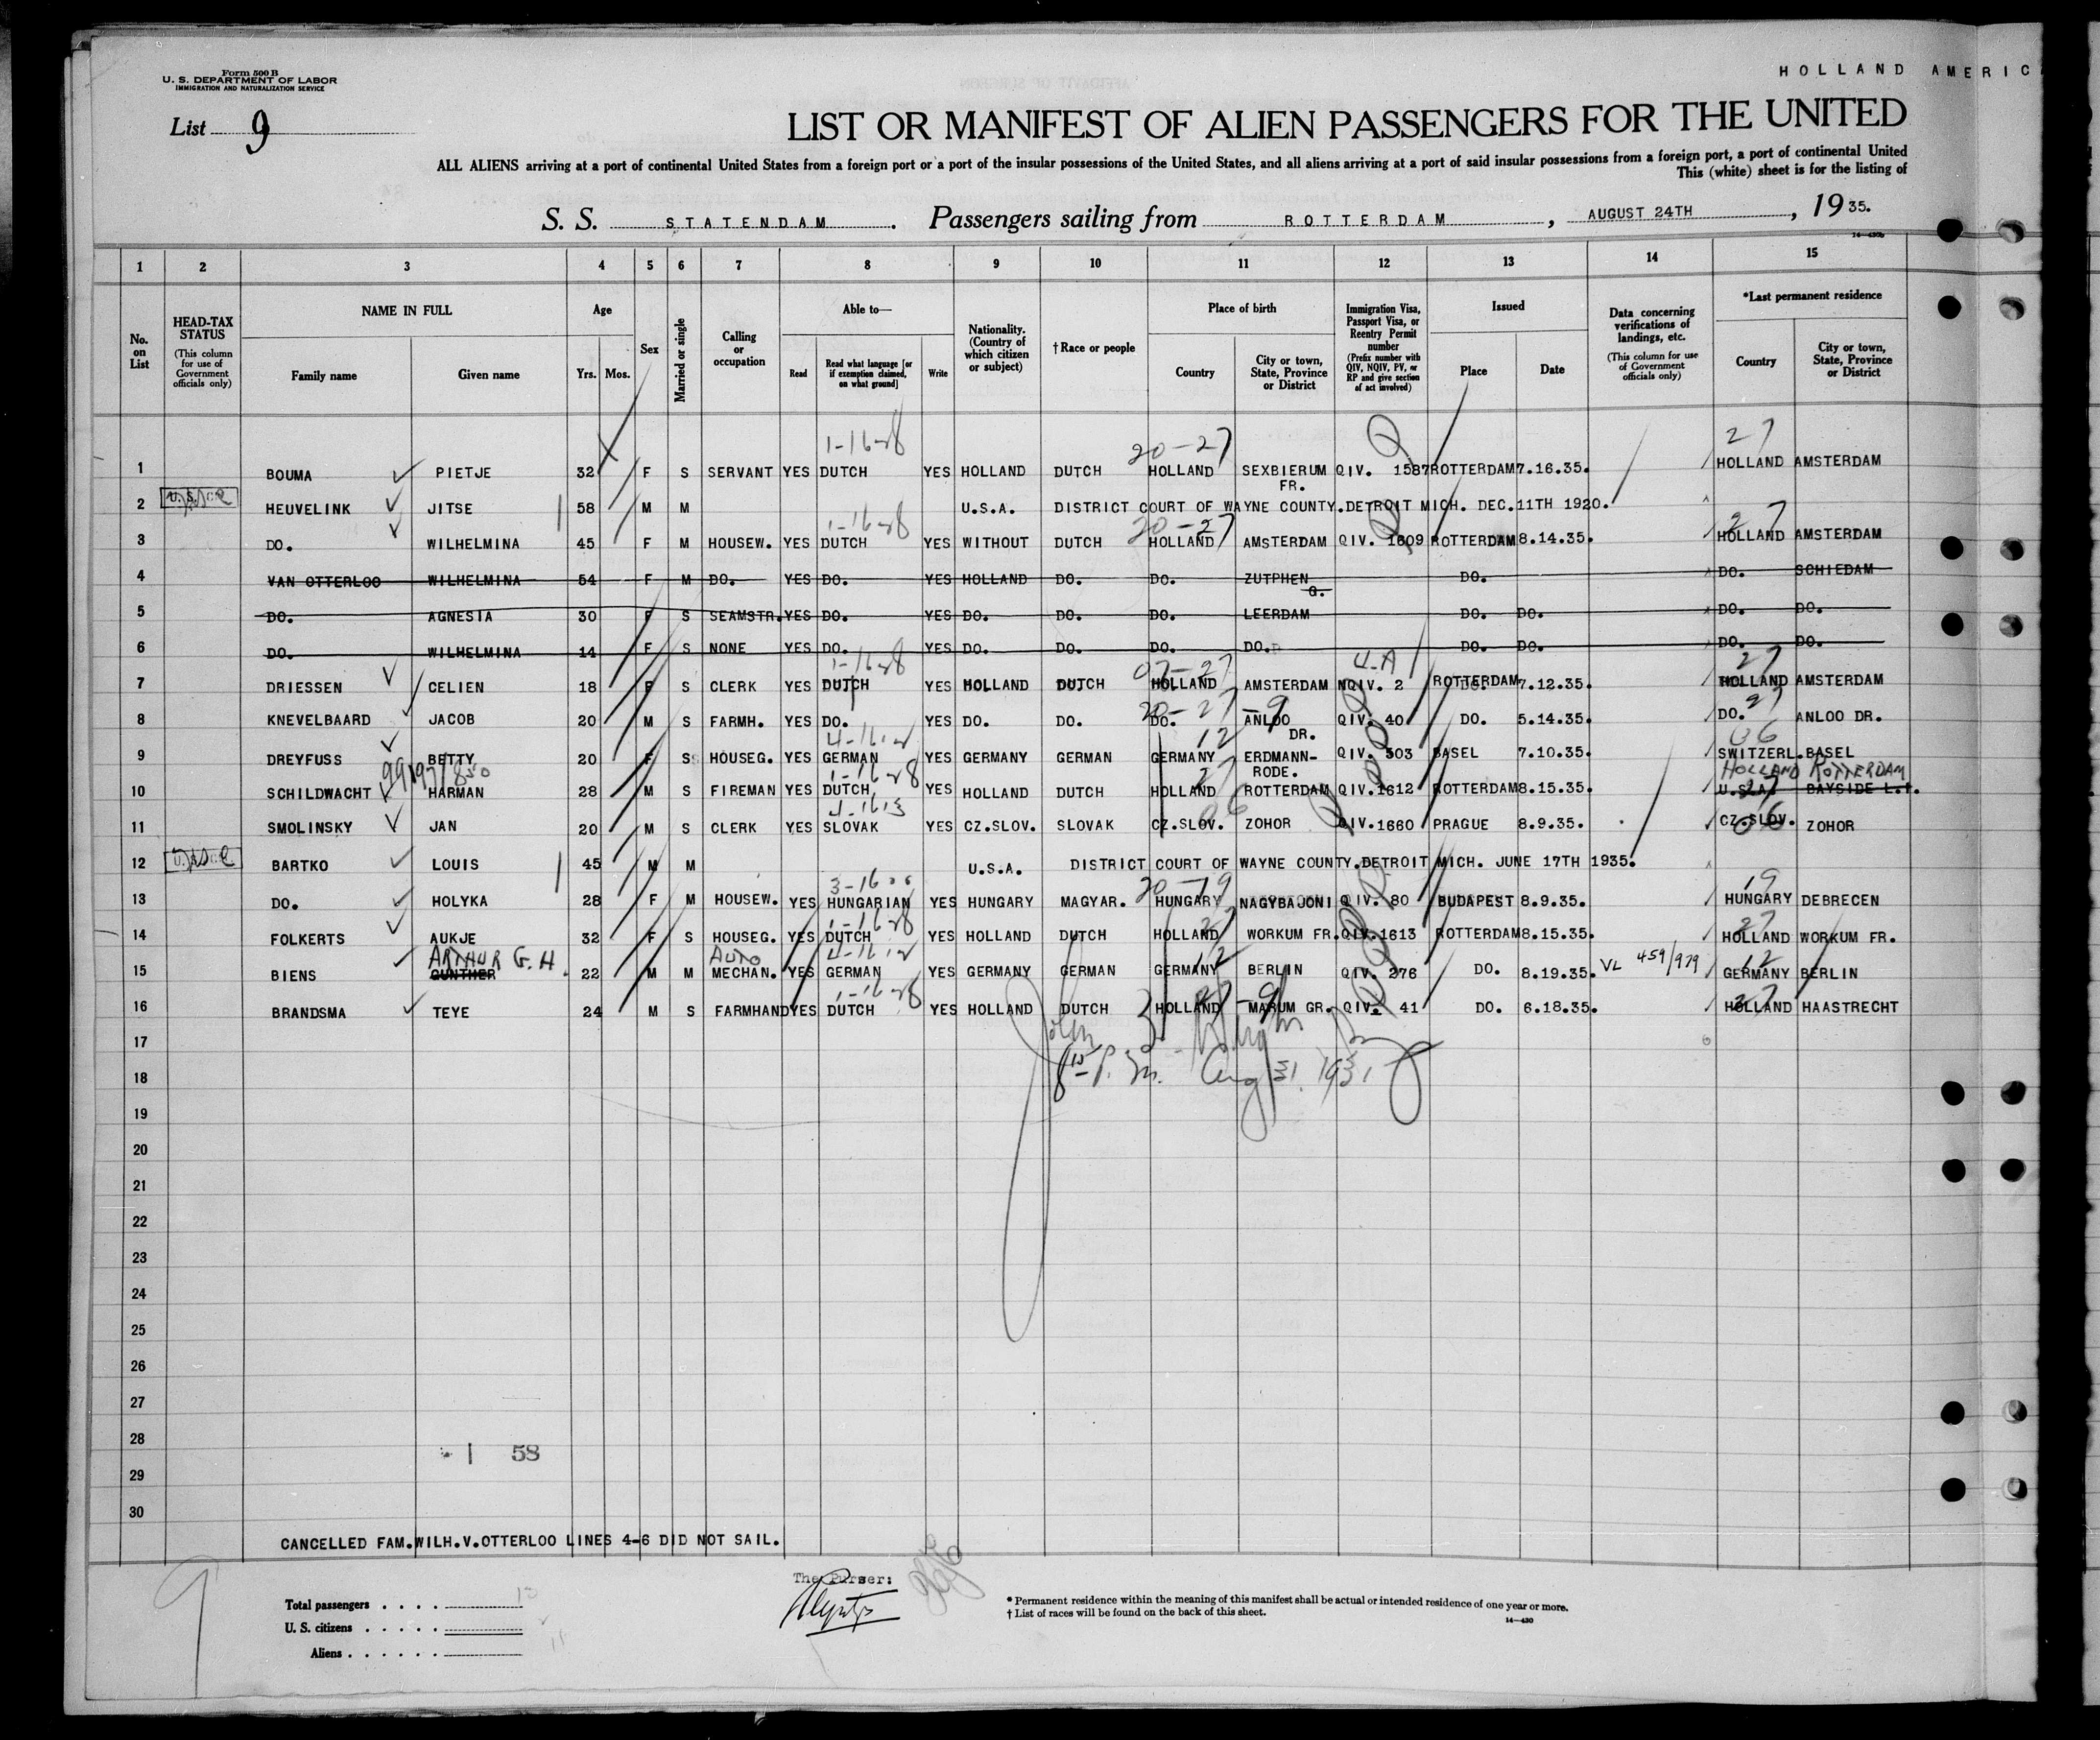 Form 500 B
U. S. DEPARTMENT OF LABOR
IMMIGRATION AND NATURALIZATION SERVICE
HOLLAND AMERIC
List 9
LIST OR MANIFEST OF ALIEN PASSENGERS FOR THE UNITED
ALL ALIENS arriving at a port of continental United States from a foreign port or a port of the insular possessions of the United States, and all aliens arriving at a port of said insular possessions from a foreign port, a port of continental United
This (white) sheet is for the listing of
S. S. STATENDAM. Passengers sailing from ROTTERDAM, AUGUST 24TH, 1935.
1 2 3 4 5 6 7 8 9 10 11 12 13 14 15
No. on List
HEAD-TAX STATUS (This column for use of Government officials only)
NAME IN FULL Family name Given name
Age Yrs. Mos.
Sex
Married or single
Calling or occupation
Able to— Read Read what language [or if exemption claimed, on what ground] Write
Nationality. (Country of which citizen or subject)
†Race or people
Place of birth Country City or town, State, Province or District
Immigration Visa, Passport Visa, or Reentry Permit number (Prefix number with QIV, NQIV, PV, or RP and give section of act involved)
Issued Place Date
Data concerning verifications of landings, etc. (This column for use of Government officials only)
*Last permanent residence Country City or town, State, Province or District
20-27 27
1 BOUMA PIETJE 32 F S SERVANT YES DUTCH YES HOLLAND DUTCH HOLLAND SEXBIERUM FR. QIV. 1587 ROTTERDAM 7.16.35. HOLLAND AMSTERDAM
2 HEUVELINK JITSE 58 M M U.S.A. DISTRICT COURT OF WAYNE COUNTY.DETROIT MICH. DEC.11TH 1920.
20-27 27
3 DO. WILHELMINA 45 F M HOUSEW. YES DUTCH YES WITHOUT DUTCH HOLLAND AMSTERDAM QIV. 1609 ROTTERDAM 8.14.35. HOLLAND AMSTERDAM
4 VAN OTTERLOO WILHELMINA 54 F M DO. YES DO. YES HOLLAND DO. DO. ZUTPHEN G. DO. DO. SCHIEDAM
5 DO. AGNESIA 30 F S SEAMSTR. YES DO. YES DO. DO. DO. LEERDAM DO. DO. DO. DO.
6 DO. WILHELMINA 14 F S NONE YES DO. YES DO. DO. DO. DO. DO. DO. DO. DO.
27
7 DRIESSEN CELIEN 18 F S CLERK YES DUTCH YES HOLLAND DUTCH HOLLAND AMSTERDAM NQIV. 2 ROTTERDAM 7.12.35. HOLLAND AMSTERDAM
8 KNEVELBAARD JACOB 20 M S FARMH. YES DO. YES DO. DO. DO. ANLOO DR. QIV. 40 DO. 5.14.35. DO. ANLOO DR.
9 DREYFUSS BETTY 20 F S HOUSEG. YES GERMAN YES GERMANY GERMAN GERMANY ERDMANN-RODE. QIV. 503 BASEL 7.10.35. SWITZERL. BASEL
HOLLAND ROTTERDAM
10 SCHILDWACHT HARMAN 28 M S FIREMAN YES DUTCH YES HOLLAND DUTCH HOLLAND ROTTERDAM QIV. 1612 ROTTERDAM 8.15.35. U.S.A. BAYSIDE L.I.
11 SMOLINSKY JAN 20 M S CLERK YES SLOVAK YES CZ.SLOV. SLOVAK CZ.SLOV. ZOHOR QIV. 1660 PRAGUE 8.9.35. CZ.SLOV. ZOHOR
12 BARTKO LOUIS 45 M M U.S.A. DISTRICT COURT OF WAYNE COUNTY.DETROIT MICH. JUNE 17TH 1935.
20-19 19
13 DO. HOLYKA 28 F M HOUSEW. YES HUNGARIAN YES HUNGARY MAGYAR. HUNGARY NAGYBAJONI QIV. 80 BUDAPEST 8.9.35. HUNGARY DEBRECEN
14 FOLKERTS AUKJE 32 F S HOUSEG. YES DUTCH YES HOLLAND DUTCH HOLLAND WORKUM FR. QIV. 1613 ROTTERDAM 8.15.35. HOLLAND WORKUM FR.
ARTHUR G.H. AUTO
15 BIENS GUNTHER 22 M M MECHAN. YES GERMAN YES GERMANY GERMAN GERMANY BERLIN QIV. 276 DO. 8.19.35. VL 459/979 GERMANY BERLIN
16 BRANDSMA TEYE 24 M S FARMHAND YES DUTCH YES HOLLAND DUTCH HOLLAND MARUM GR. QIV. 41 DO. 6.18.35. HOLLAND HAASTRECHT
17
18
19
20
21
22
23
24
25
26
27
28
1 58
29
30
CANCELLED FAM.WILH.V.OTTERLOO LINES 4-6 DID NOT SAIL.
The Purser:
Total passengers
U. S. citizens
Aliens
* Permanent residence within the meaning of this manifest shall be actual or intended residence of one year or more.
† List of races will be found on the back of this sheet.
14—430